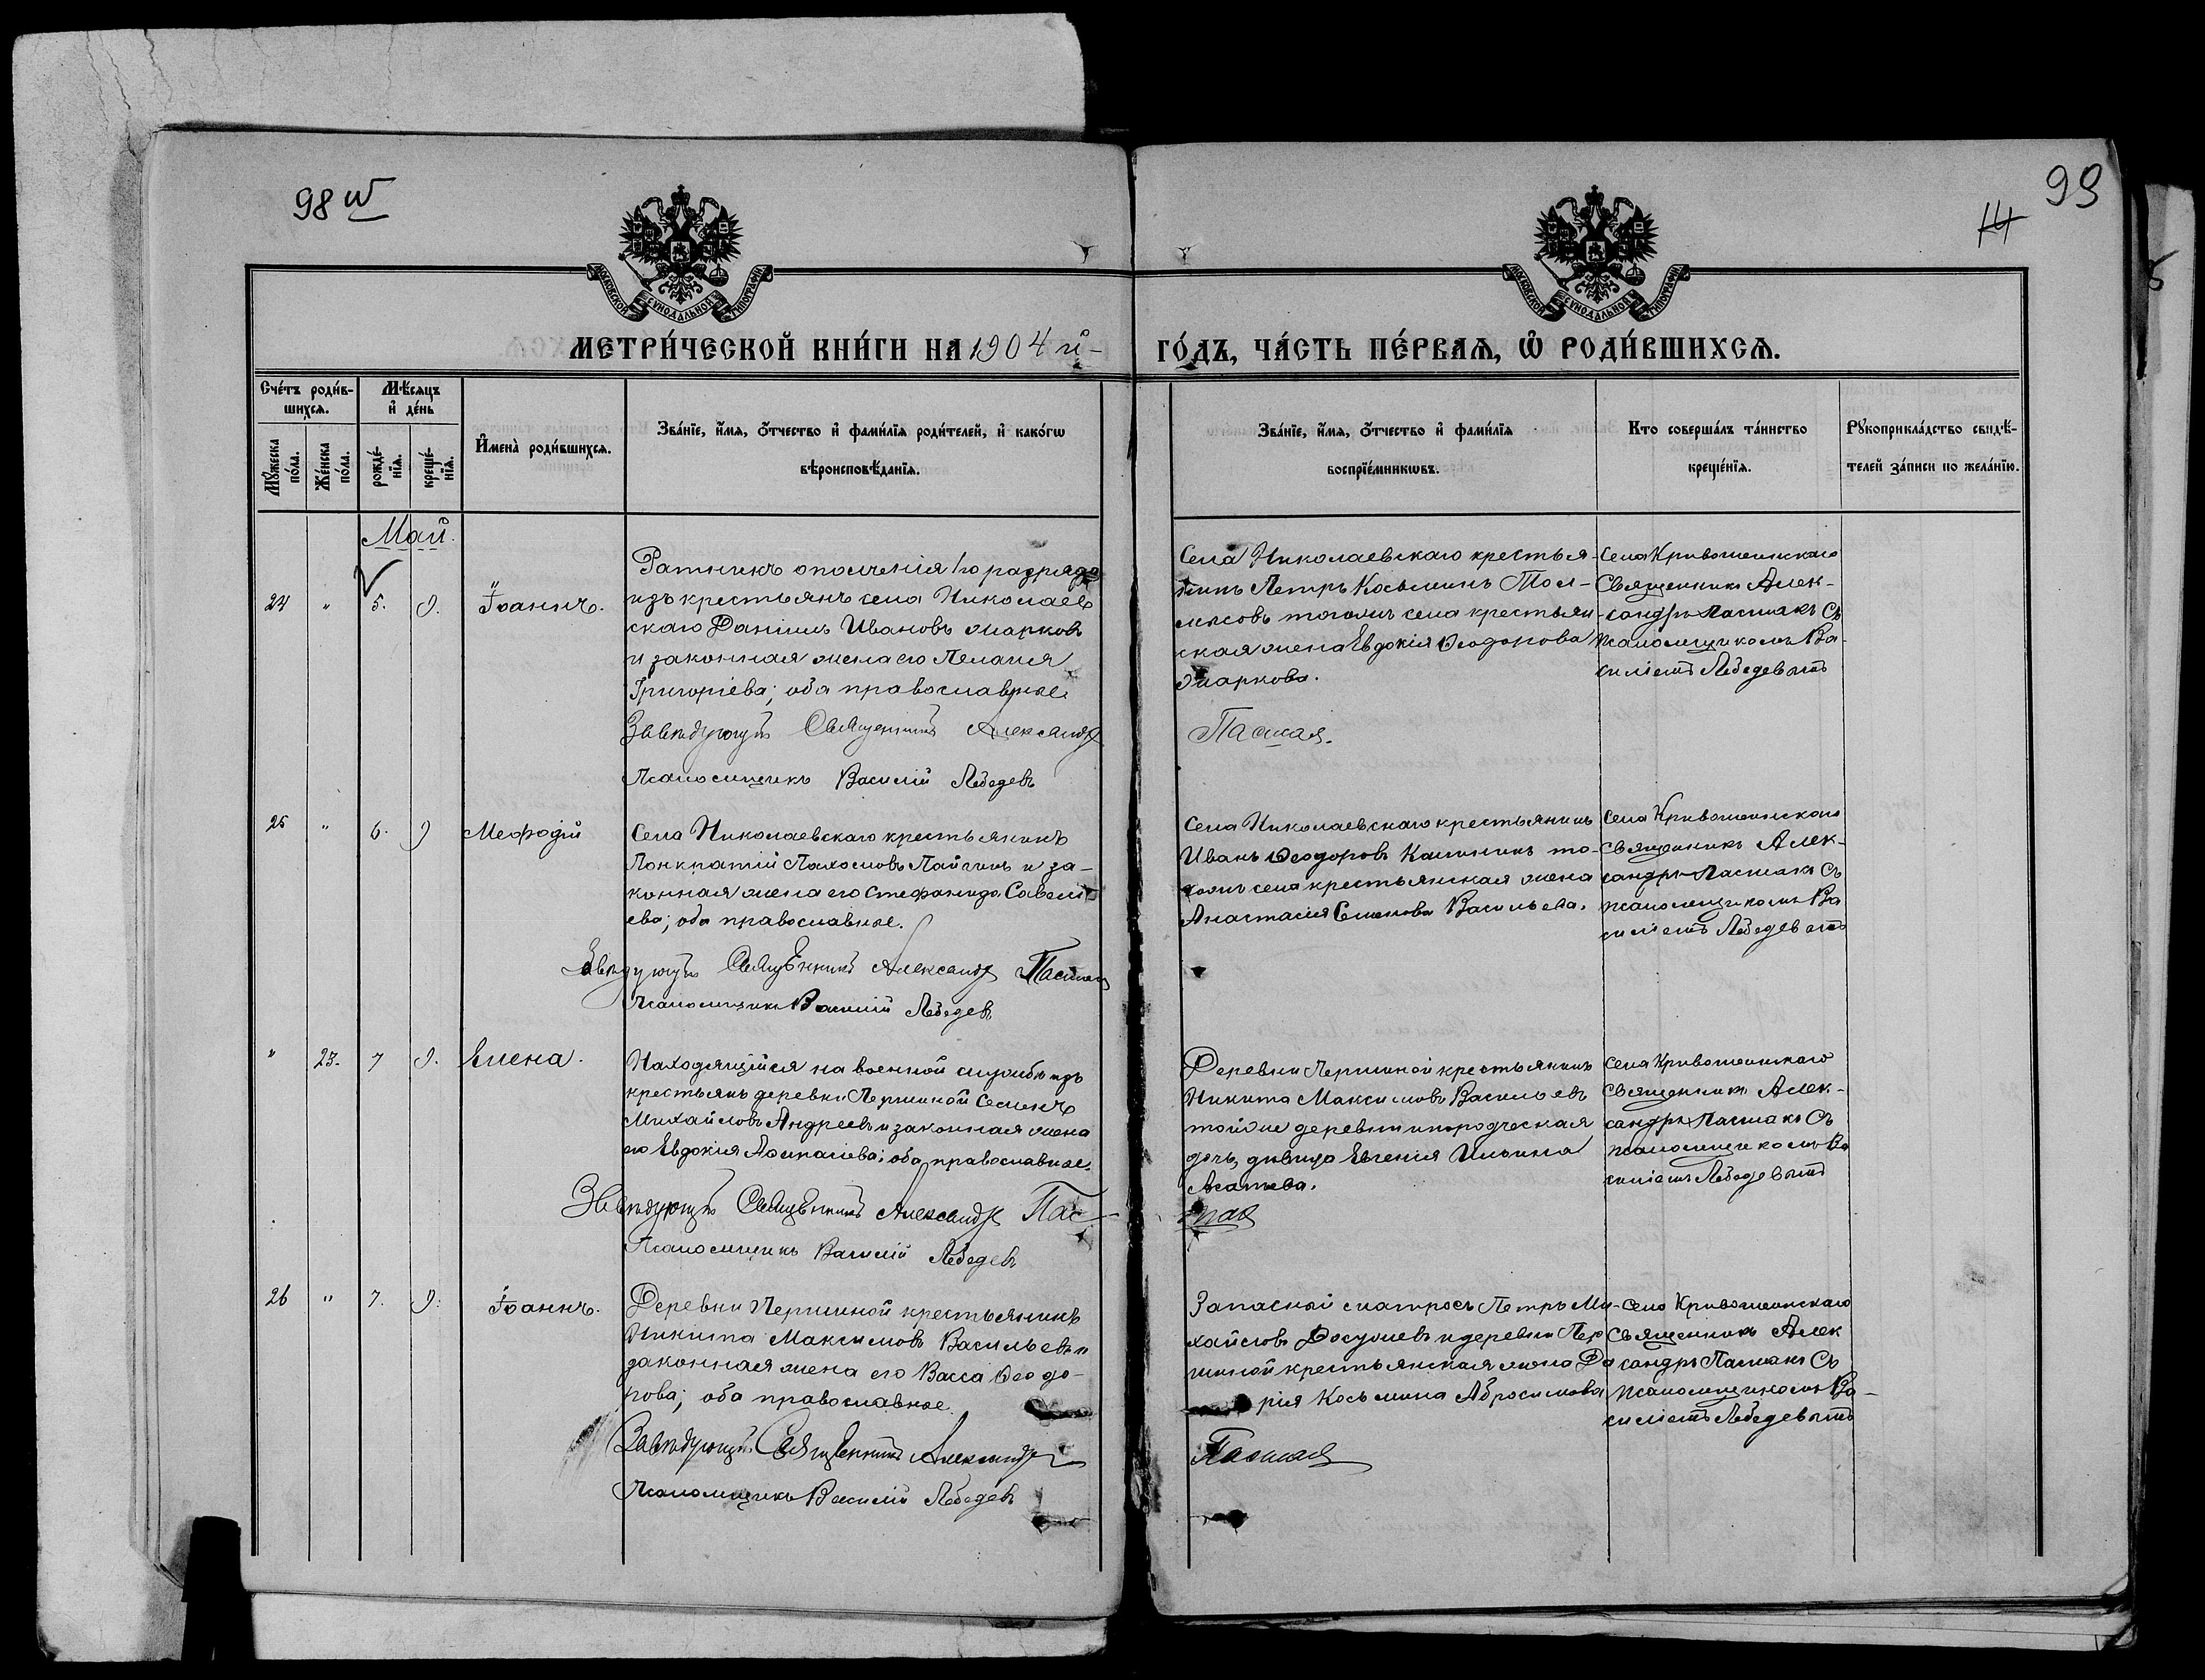 98 об
99
14
МОСКОВСКОЙ СѴНОДАЛЬНОЙ ТИПОГРАФІИ
МОСКОВСКОЙ СѴНОДАЛЬНОЙ ТИПОГРАФІИ
МЕТРИ́ЧЕСКОЙ КНИ́ГИ НА 1904 й
ГО́ДЪ, ЧА́СТЬ ПЕ́РВАѦ, Ѽ РОДИ́ВШИХСѦ.
Сче́тъ роди́в-
шихсѧ.
Мѣ́сяцъ
и҆ де́нь
Мꙋ́жеска
по́ла.
Же́нска
по́ла.
рожде́-
нїѧ.
креще́-
нїѧ.
И҆мена̀ роди́вшихсѧ.
Зва́нїе, и҆́мѧ, ѻ҆́тчество и҆ фами́лїѧ роди́телей, и҆ како́гѡ
вѣроисповѣ́данїѧ.
Зва́нїе, и҆́мѧ, ѻ҆́тчество и҆ фами́лїѧ
воспрїе́мникѡвъ.
Кто соверша́лъ та́инство
креще́нїѧ.
Рꙋкоприкла́дство свидѣ́-
телей за́писи по жела́нїю.
Май.
24 " 5. 9. Іоаннъ.
Ратникъ ополченія 1го разряда
изъ крестьянъ села Николаев
скаго Даніилъ Ивановъ Жарковъ
и законная жена его Пелагия
Григоріева; оба православные.
Завѣдующій Священникъ Александръ
Псаломщикъ Василій Лебедевъ
Села Николаевскаго крестья-
нинъ Петръ Косьминъ Тол-
масовъ тогожъ села крестьян-
ская жена Евдокія Ѳеодорова
Жаркова.
Пасмакъ.
Села Кривошеинскаго
Священникъ Алек-
сандръ Пасмакъ съ
псаломщикомъ Ва-
силіемъ Лебедевымъ
25 " 6. 9 Меѳодій
Села Николаевскаго крестьянинъ
Панкратій Пахомовъ Пайгинъ и за-
конная жена его Стефанида Савель
ева; оба православные.
Завѣдующій Священникъ Александръ Пасмакъ
Псаломщикъ Василій Лебедевъ
Села Николаевскаго крестьянинъ
Иванъ Ѳеодоровъ Калининъ то-
гожъ села крестьянская жена
Анастасія Семенова Васильева.
Села Кривошеинскаго
Священникъ Алек-
сандръ Пасмакъ съ
псаломщикомъ Ва
силіемъ Лебедевымъ
" 23. 7 9. Елена.
Находящійся на военной службѣ изъ
крестьянъ деревни Першиной Семенъ
Михайловъ Андреевъ и законная жена
его Евдокія Аѳанасіева; оба православные.
Завѣдующій Священникъ Александръ Пас-
Псаломщикъ Василій Лебедевъ
Деревни Першиной крестьянинъ
Никита Максимовъ Васильевъ
той же деревни инородческая
дочь, дѣвица Евгенія Ильина
макъ
Села Кривошеинскаго
Священникъ Алек-
сандръ Пасмакъ съ
псаломщикомъ Ва
силіемъ Лебедевымъ
26 " 7. 9. Іоаннъ.
Деревни Першиной крестьянинъ
Никита Максимовъ Васильевъ и
законная жена его Васса Ѳеодо-
рова; оба православные.
Завѣдующій Священникъ Александръ
Псаломщикъ Василій Лебедевъ
Запасный матросъ Петръ Ми-
хайловъ Досужевъ и деревни Пер
шиной крестьянская жена Да
рія Косьмина Абросимова
Пасмакъ
Села Кривошеинскаго
Священникъ Алек
сандръ Пасмакъ съ
псаломщикомъ Ва-
силіемъ Лебедевымъ